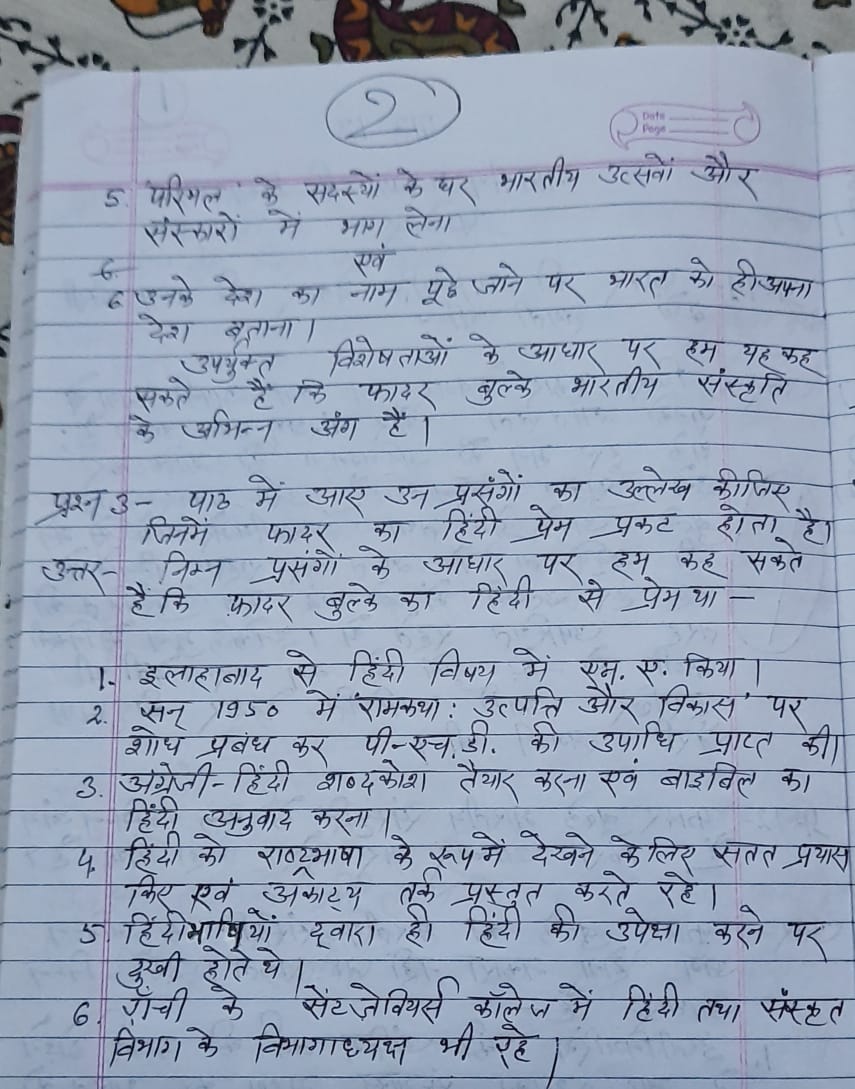 2
Date
Page
5. 'परिमल' के सदस्यों के घर भारतीय उत्सवों और
संस्कारों में भाग लेना
एवं
6.
6. उनके देश का नाम पूछे जाने पर भारत को ही अपना
देश बताना।
उपर्युक्त विशेषताओं के आधार पर हम यह कह
सकते हैं कि फादर बुल्के भारतीय संस्कृति
के अभिन्न अंग हैं।
प्रश्न 3- पाठ में आए उन प्रसंगों का उल्लेख कीजिए
जिनमें फादर का हिंदी प्रेम प्रकट होता है।
उत्तर- निम्न प्रसंगों के आधार पर हम कह सकते
हैं कि फ़ादर बुल्के का हिंदी से प्रेम था –
1. इलाहाबाद से हिंदी विषय में एम. ए. किया।
2. सन् 1950 में 'रामकथा : उत्पत्ति और विकास' पर
शोध प्रबंध कर पी-एच.डी. की उपाधि प्राप्त की।
3. अंग्रेजी-हिंदी शब्दकोश तैयार करना एवं बाइबिल का
हिंदी अनुवाद करना।
4. हिंदी को राष्ट्रभाषा के रूप में देखने के लिए सतत प्रयास
किए एवं अकाट्य तर्क प्रस्तुत करते रहे।
5. हिंदीभाषियों द्वारा ही हिंदी की उपेक्षा करने पर
दुखी होते थे।
6. राँची के सेंट ज़ेवियर्स कॉलेज में हिंदी तथा संस्कृत
विभाग के विभागाध्यक्ष भी रहे।